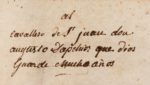 al
cavallero de Sn juan don
augusto Zapchis que dios
Guarde Mucho años